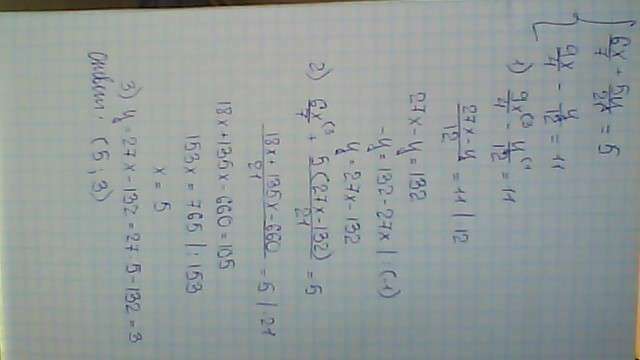 { 6x/7 + 5y/21 = 5
9x/4 - y/12 = 11
1) 9x/4 (3 - y/12 (1 = 11
27x - y/12 = 11 | 12
27x - y = 132
-y = 132 - 27x | : (-1)
y = 27x - 132
2) 6x/7 (3 + 5(27x-132)/21 = 5
18x + 135x - 660/21 = 5 | 21
18x + 135x - 660 = 105
153x = 765 | : 153
x = 5
3) y = 27x - 132 = 27 · 5 - 132 = 3
Ответ: (5; 3)